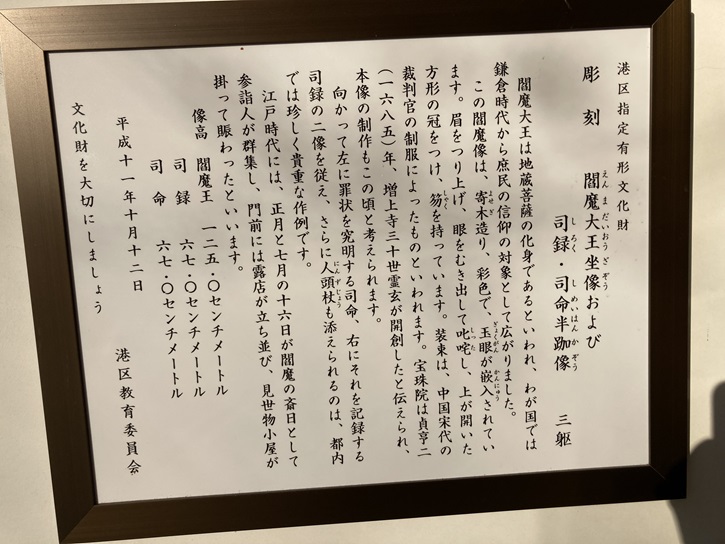 港区指定有形文化財
彫刻　閻魔大王坐像および
司録・司命半跏像　三躯
閻魔大王は地蔵菩薩の化身であるといわれ、わが国では
鎌倉時代から庶民の信仰の対象として広がりました。
この閻魔像は、寄木造り、彩色で、玉眼が嵌入されてい
ます。眉をつり上げ、眼をむき出して叱咤し、上が開いた
方形の冠をつけ、笏を持っています。装束は、中国宋代の
裁判官の制服によったものといわれます。宝珠院は貞享二
（一六八五）年、増上寺三十世霊玄が開創したと伝えられ、
本像の制作もこの頃と考えられます。
向かって左に罪状を究明する司命、右にそれを記録する
司録の二像を従え、さらに人頭杖も添えられるのは、都内
では珍しく貴重な作例です。
江戸時代には、正月と七月の十六日が閻魔の斎日として
参詣人が群集し、門前には露店が立ち並び、見世物小屋が
掛って賑わったといいます。
像高　閻魔王　一二五・〇センチメートル
司録　六七・〇センチメートル
司命　六七・〇センチメートル
平成十一年十月十二日
港区教育委員会
文化財を大切にしましょう